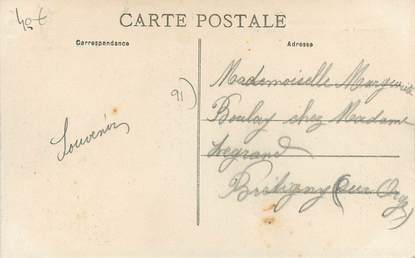 40 €
CARTE POSTALE
Correspondance
Adresse
91)
Souvenir
Mademoiselle Marguerite
Boulay chez Madame
Legrand
Brétigny (sur Orge)